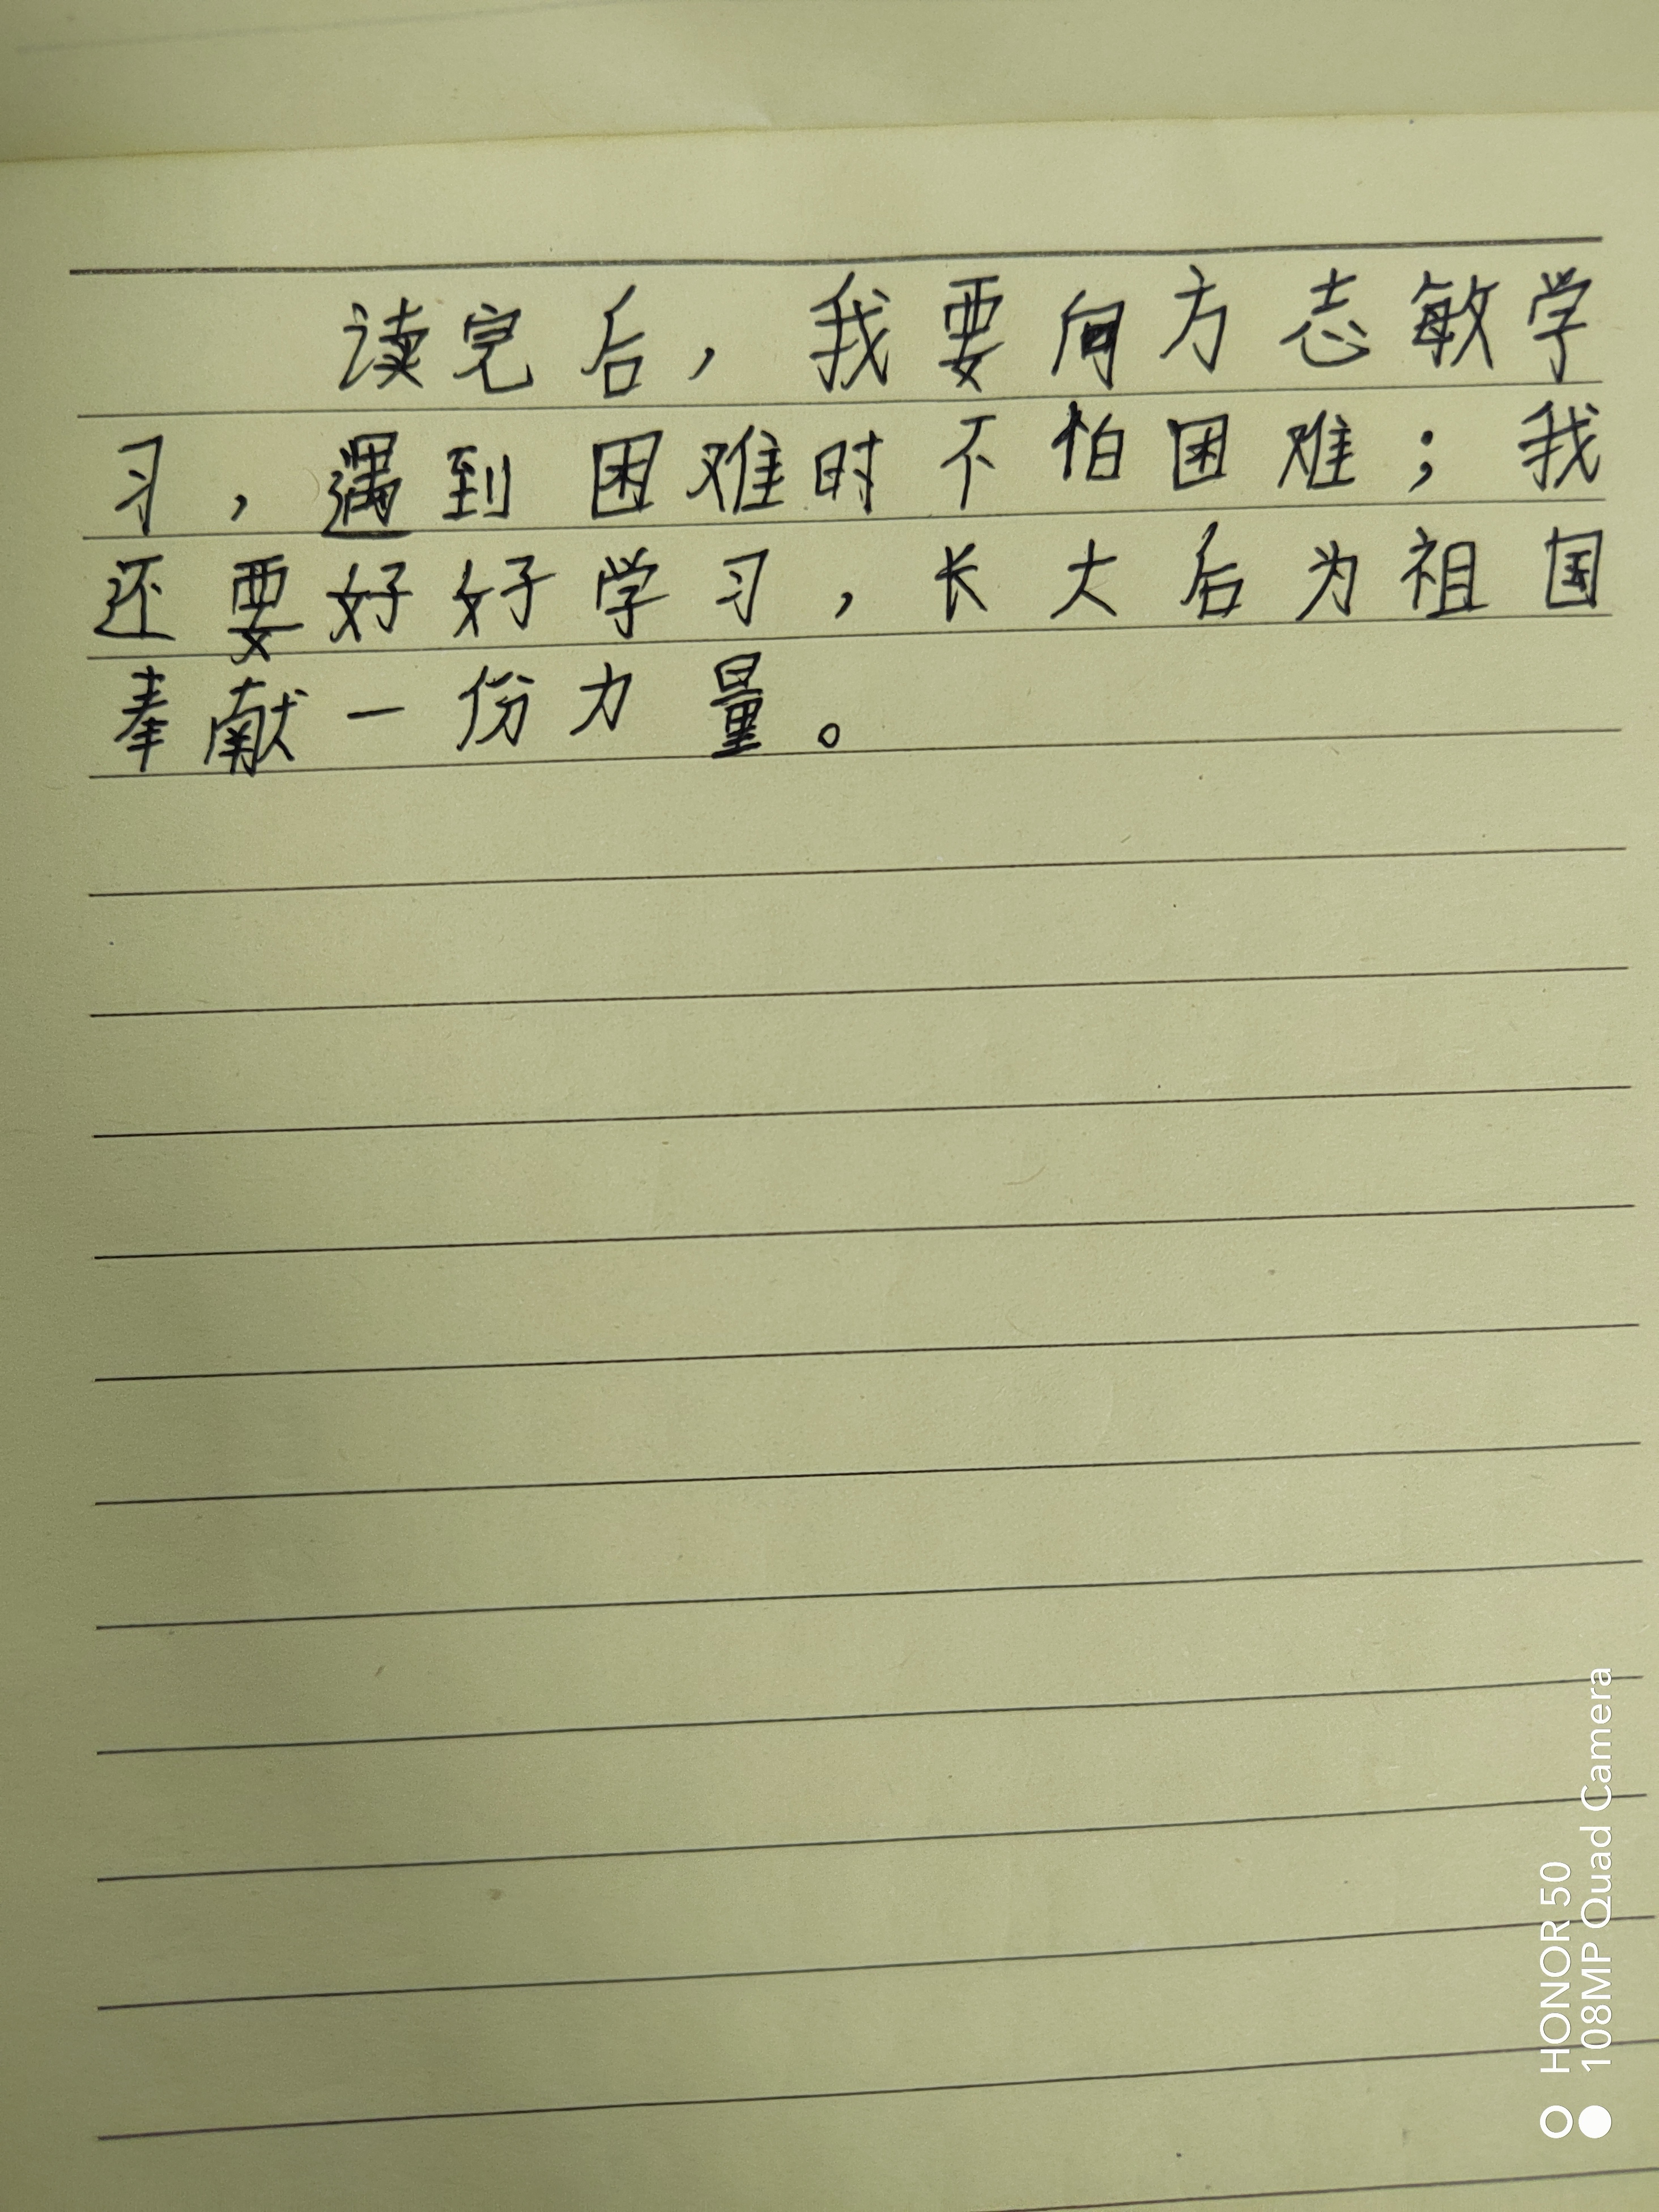 读完后，我要向方志敏学
习，遇到困难时不怕困难；我
还要好好学习，长大后为祖国
奉献一份力量。
HONOR 50
108MP Quad Camera